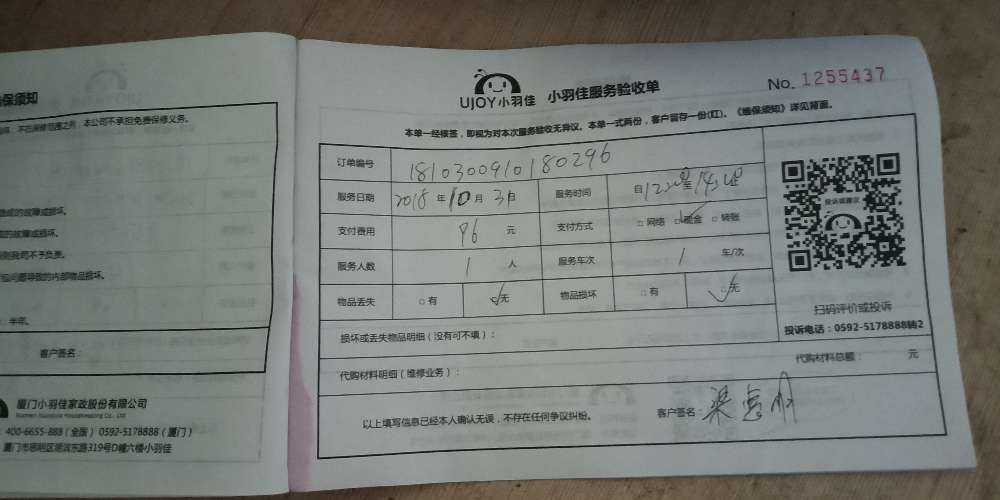 保须知
本公司不承担免费保修义务。
造成的故障或损坏。
的故障或损坏。
则我司不予负责。
包问题导致的内部物品损坏。
半年。
客户签名：
厦门小羽佳家政股份有限公司
Xiamen Xiaoyujia Housekeeping Co., Ltd
400-6655-888（全国）0592-5178888（厦门）
厦门市思明区湖滨东路319号D幢六楼小羽佳
UJOY小羽佳 小羽佳服务验收单 No. 1255437
本单一经核签，即视为对本次服务验收无异议。本单一式两份，客户留存一份(红)。《维保须知》详见背面。
订单编号 1810300910180296
服务日期 2018 年 10 月 31 日 服务时间
支付费用 96 元 支付方式 □ 网络 □ 现金 □ 转账
服务人数 1 人 服务车次 1 车/次
物品丢失 □ 有 □ 无 物品损坏 □ 有 □ 无
损坏或丢失物品明细（没有可不填）：
代购材料明细（维修业务）： 代购材料总额： 元
以上填写信息已经本人确认无误，不存在任何争议纠纷。 客户签名：
投诉或建议
扫码评价或投诉
投诉电话：0592-5178888转2